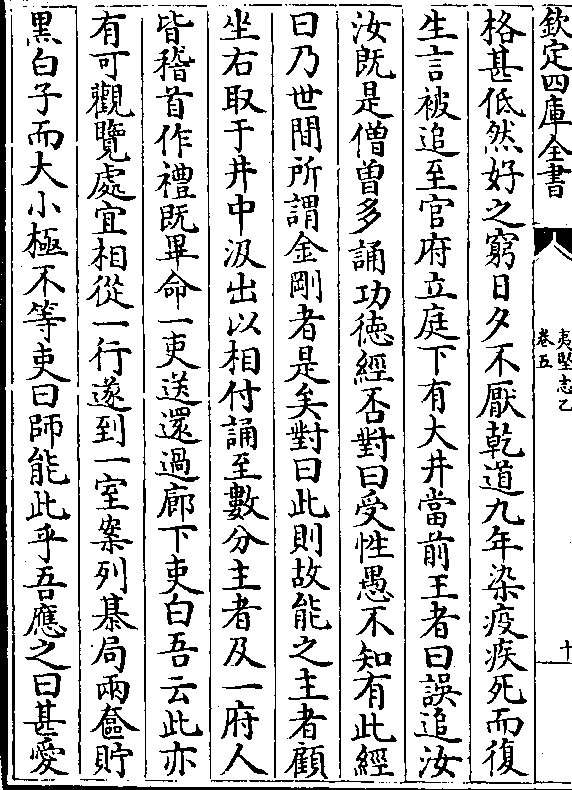 欽定四庫全書
夷堅志乙
卷五
十
格甚低然好之窮日夕不厭乾道九年染疫疾死而復
生言被追至官府立庭下有大井當前王者曰誤追汝
汝既是僧曽多誦功徳經否對曰受性愚不知有此經
曰乃世間所謂金剛者是矣對曰此則故能之主者顧
坐右取于井中汲出以相付誦至數分主者及一府人
皆稽首作禮既畢命一吏送還過廊下吏白吾云此亦
有可觀覽處宜相從一行遂到一室案列棊局兩奩貯
黑白子而大小極不等吏曰師能此乎吾應之曰甚愛